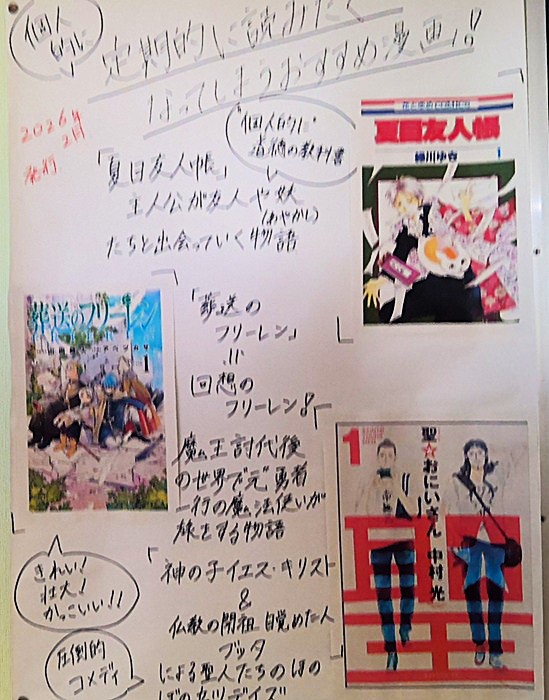 個人的に
定期的に読みたく
なってしまうおすすめ漫画!!
2026年
2月
発行
"個人的に"
道徳の教科書
「夏目友人帳」
主人公が友人や妖
(あやかし)
たちと出会っていく物語
夏目友人帳
緑川ゆき
1
葬送のフリーレン
1
「葬送の
フリーレン」
=
回想の
フリーレン!
魔王討伐後
の世界で"元"勇者
一行の魔法使いが
旅をする物語
きれい!
壮大!
かっこいい!!
1
聖☆おにいさん
中村 光
神の子イエス・キリスト
&
仏教の開祖 目覚めた人
ブッタ
による聖人たちのほの
圧倒的
コメディ